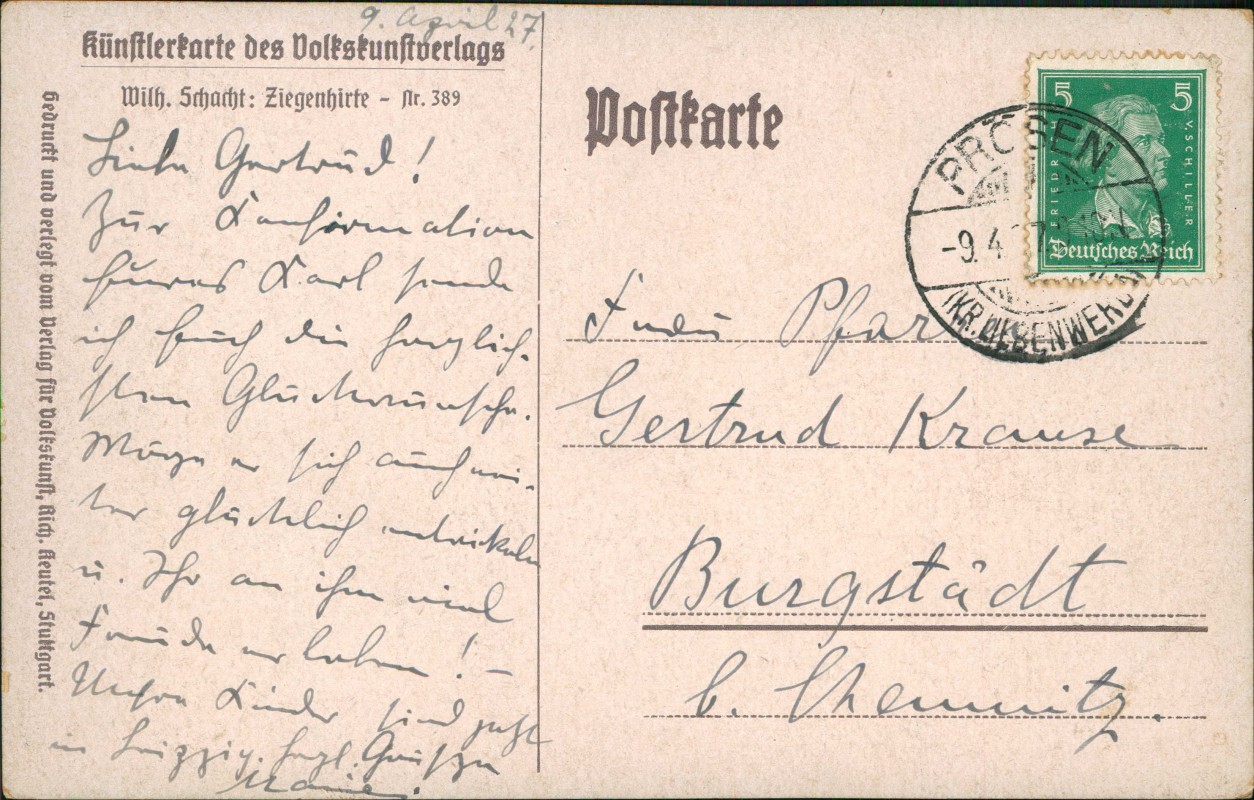 9. April 27.
Künstlerkarte des Volkskunstverlags
Wilh. Schacht: Ziegenhirte – Nr. 389
Gedruckt und verlegt vom Verlag für Volkskunst, Rich. Keutel, Stuttgart.
Liebe Gertrud!
Zur Konfirmation
Eures Karl sende
ich Euch die herzlich-
sten Glückwünsche.
Möge er sich auch wei-
ter glücklich entwickeln
u. Ihr an ihm viel
Freude erleben! –
Unsre Kinder sind jetzt
in Leipzig. Herzl. Grüsse
Marie.
Postkarte
5 5
FRIEDR. V. SCHILLER
Deutsches Reich
PRÖSEN
-9.4.27
(KR. LIEBENWERDA)
Frau Pfar
Gertrud Krause
Burgstädt
b. Chemnitz.